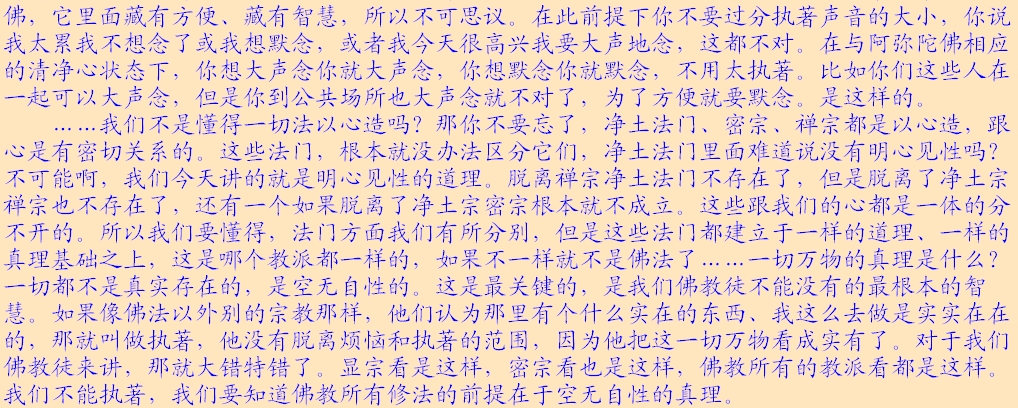 佛，它里面藏有方便、藏有智慧，所以不可思议。在此前提下你不要过分执著声音的大小，你说
我太累我不想念了或我想默念，或者我今天很高兴我要大声地念，这都不对。在与阿弥陀佛相应
的清净心状态下，你想大声念你就大声念，你想默念你就默念，不用太执著。比如你们这些人在
一起可以大声念，但是你到公共场所也大声念就不对了，为了方便就要默念。是这样的。
……我们不是懂得一切法以心造吗？那你不要忘了，净土法门、密宗、禅宗都是以心造，跟
心是有密切关系的。这些法门，根本就没办法区分它们，净土法门里面难道说没有明心见性吗？
不可能啊，我们今天讲的就是明心见性的道理。脱离禅宗净土法门不存在了，但是脱离了净土宗
禅宗也不存在了，还有一个如果脱离了净土宗密宗根本就不成立。这些跟我们的心都是一体的分
不开的。所以我们要懂得，法门方面我们有所分别，但是这些法门都建立于一样的道理、一样的
真理基础之上，这是哪个教派都一样的，如果不一样就不是佛法了……一切万物的真理是什么？
一切都不是真实存在的，是空无自性的。这是最关键的，是我们佛教徒不能没有的最根本的智
慧。如果像佛法以外别的宗教那样，他们认为那里有个什么实在的东西、我这么去做是实实在在
的，那就叫做执著，他没有脱离烦恼和执著的范围，因为他把这一切万物看成实有了。对于我们
佛教徒来讲，那就大错特错了。显宗看是这样，密宗看也是这样，佛教所有的教派看都是这样。
我们不能执著，我们要知道佛教所有修法的前提在于空无自性的真理。